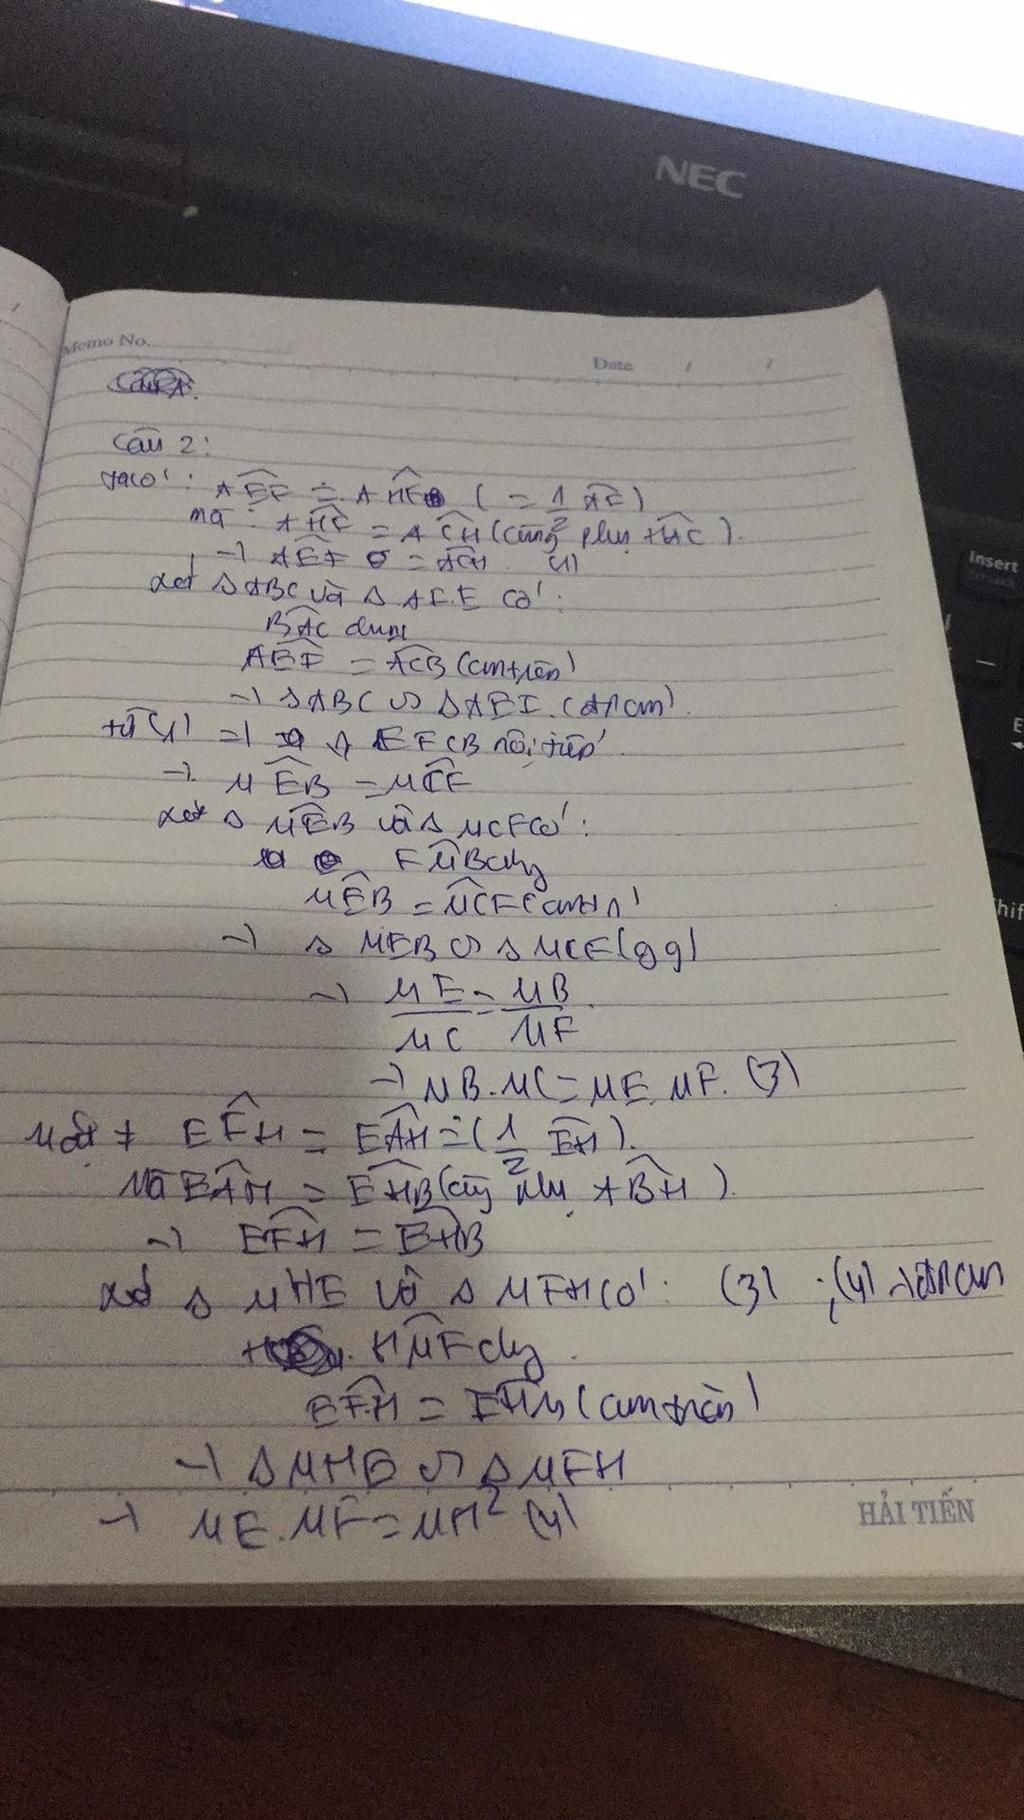 NEC
Insert
Shif
Memo No.
Date / /
Câu 2:
Ta có: AEF = AHF ( = 1/2 AF)
mà: AHF = ACH (cùng phụ HAC).
→ AEF = ACH (1)
xét Δ ABC và Δ AFE có:
BAC chung
AEF = ACB (cmtrên)
→ Δ ABC ∽ Δ AEF (đpcm).
từ (1) => EFCB nội tiếp
→ MEB = MCF
xét Δ MEB và Δ MCF có:
FMB chg
MEB = MCF (cmtrn)
→ Δ MEB ∽ Δ MCF (gg)
→ ME/MC = MB/MF
→ MB.MC = ME.MF. (3)
Mặt ≠ EFH = EAH = (1/2 EH).
Mà BAH = EHB (cùg phụ ABH).
→ EFH = EHB
xét Δ MHE và Δ MFH có: (3) ; (4) → đpcm
HMF chg.
EFH = EHM (cmtrên)
→ Δ MHE ∽ Δ MFH
→ ME.MF = MH² (4)
HẢI TIẾN